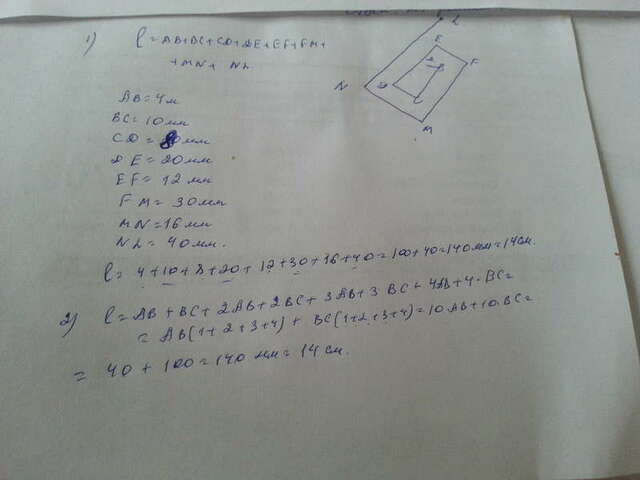 1) l = AB+BC+CD+DE+EF+FM+
+MN+ NL
AB=4м
BC=10мм
CD=8мм
DE=20мм
EF=12мм
FM=30мм
MN=16мм
NL=40мм.
l= 4+10+8+20+12+30+16+40=100+40=140мм=14см.
2) l=AB+BC+2AB+2BC+3AB+3BC+4AB+4·BC=
= AB(1+2+3+4)+ BC(1+2+3+4)=10AB+10BC=
= 40+100=140мм=14см.
L
E
F
N
D
B
C
M